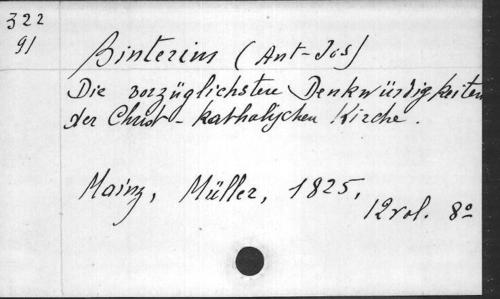 322
91
Binterim (Ant-Jos)
Die vorzüglichsten Denkwürdigkeiten
der Christ-katholischen Kirche.
Mainz, Müller, 1825,
12 vol. 8º